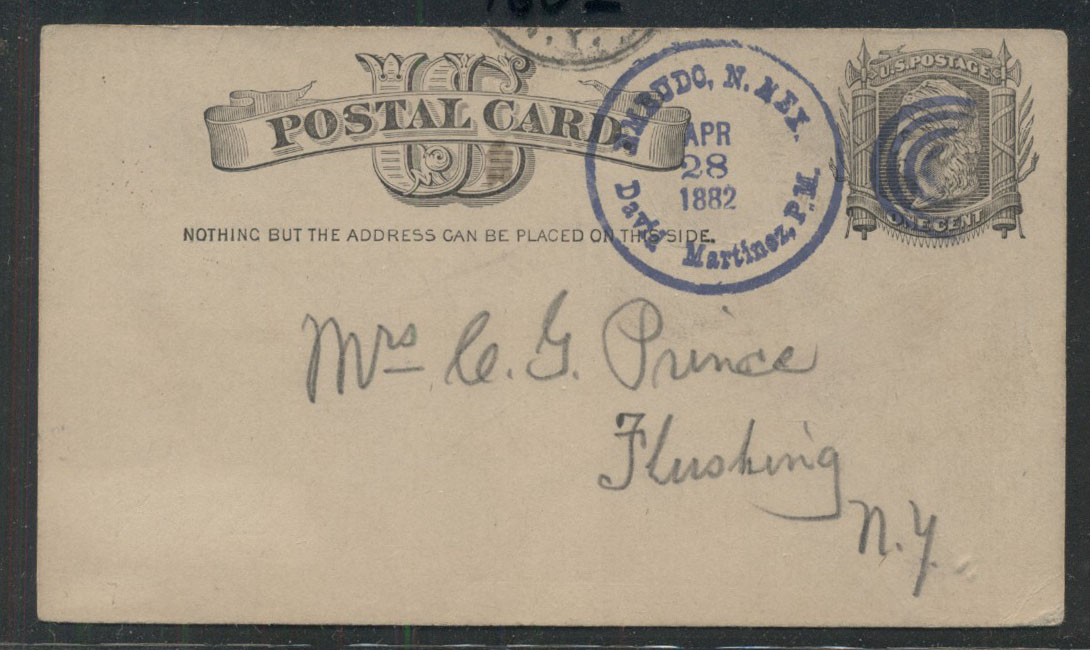 U.S. POSTAGE
POSTAL CARD
US
EMBUDO, N. MEX.
APR
28
1882
David Martinez, P.M.
ONE CENT
NOTHING BUT THE ADDRESS CAN BE PLACED ON THIS SIDE.
Mrs C. G. Prince
Flushing
N.Y.